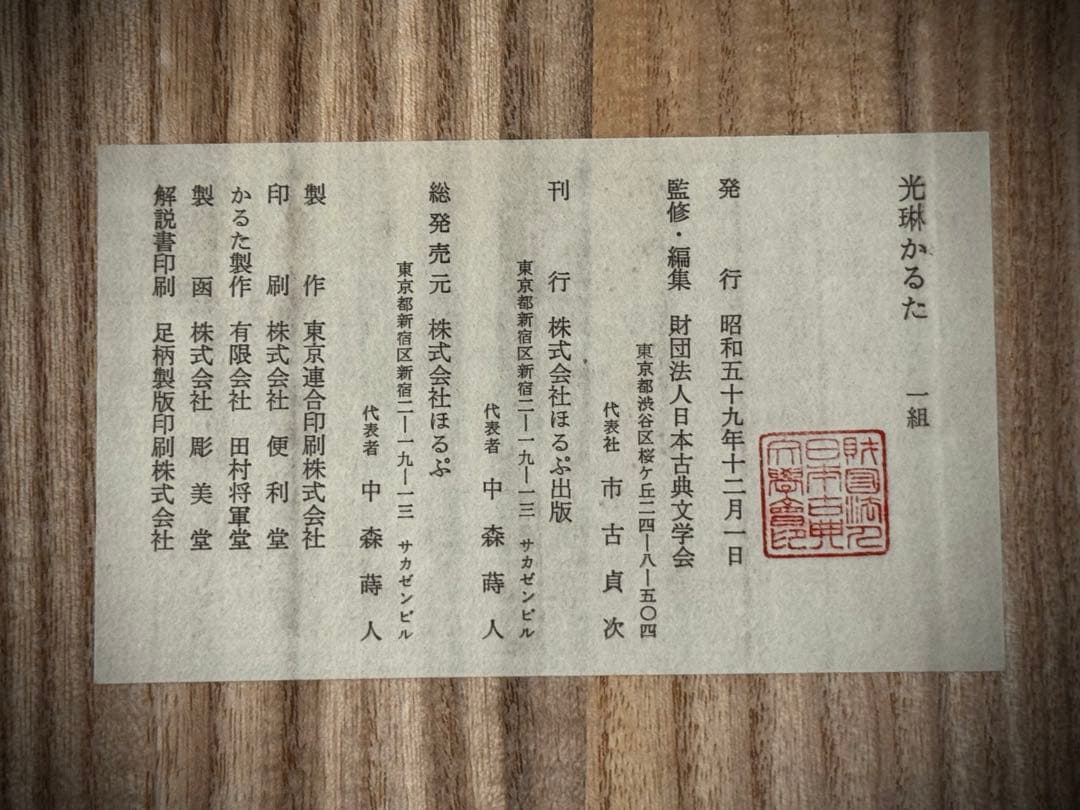 光琳かるた　一組
財団法人
日本古典
文學會印
発行　昭和五十九年十二月一日
監修・編集　財団法人日本古典文学会
東京都渋谷区桜ケ丘二四―八―五〇四
代表社　市古貞次
刊行　株式会社ほるぷ出版
東京都新宿区新宿二―一九―一三　サカゼンビル
代表者　中森蒔人
総発売元　株式会社ほるぷ
東京都新宿区新宿二―一九―一三　サカゼンビル
代表者　中森蒔人
製作　東京連合印刷株式会社
印刷　株式会社　便利堂
かるた製作　有限会社　田村将軍堂
製函　株式会社　彫美堂
解説書印刷　足柄製版印刷株式会社